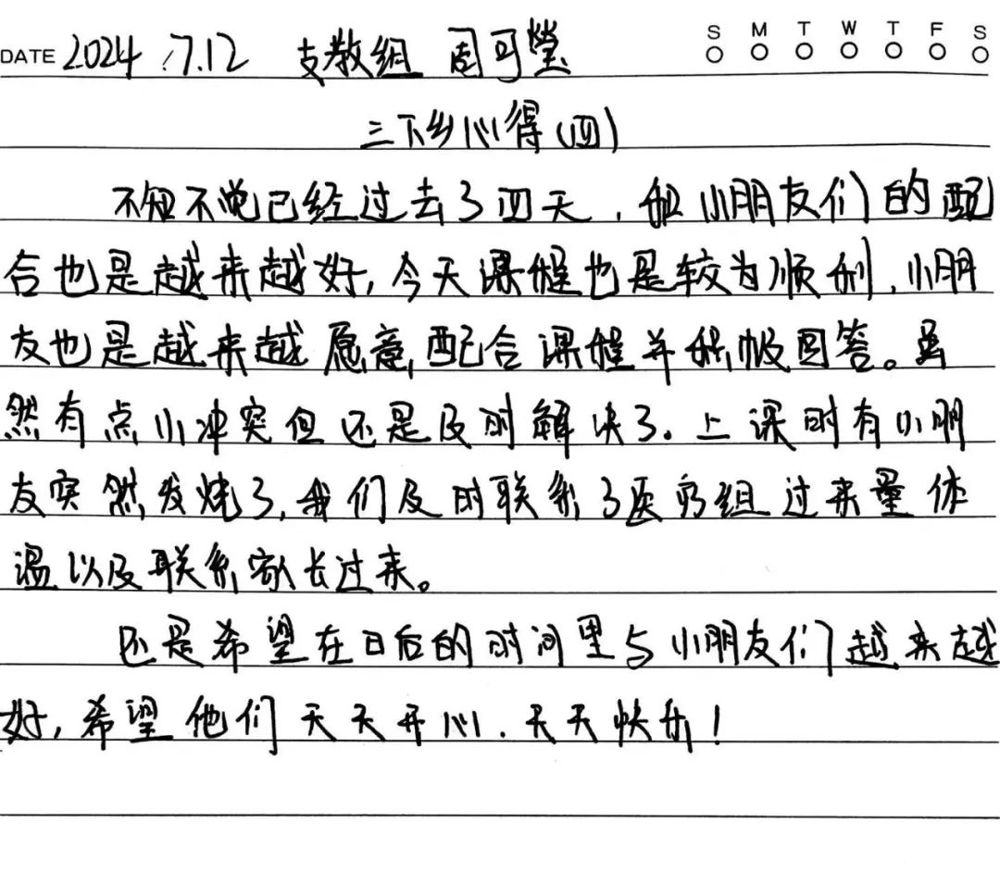 S M T W T F S
DATE 2024.7.12 支教组 周可莹
三下乡心得(四)
不知不觉已经过去了四天,和小朋友们的配
合也是越来越好,今天课程也是较为顺利,小朋
友也是越来越愿意配合课程并积极回答。虽
然有点小冲突但还是及时解决了。上课时有小朋
友突然发烧了,我们及时联系了医疗组过来量体
温以及联系家长过来。
还是希望在日后的时间里与小朋友们越来越
好,希望他们天天开心,天天快乐!